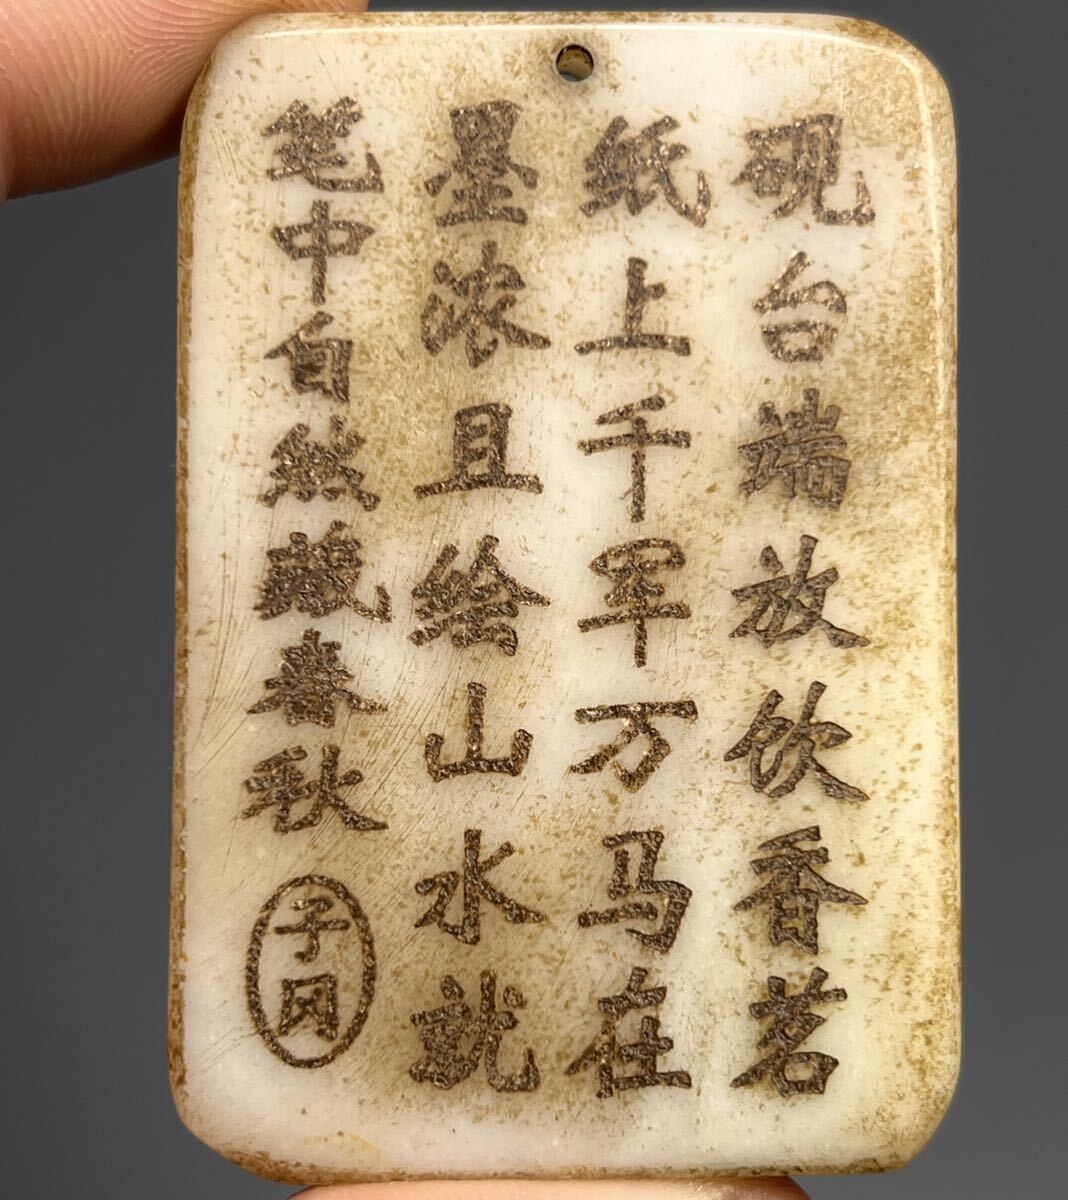 砚台端放饮香茗
纸上千军万马在
墨浓且绘山水就
笔中自然藏春秋
子冈